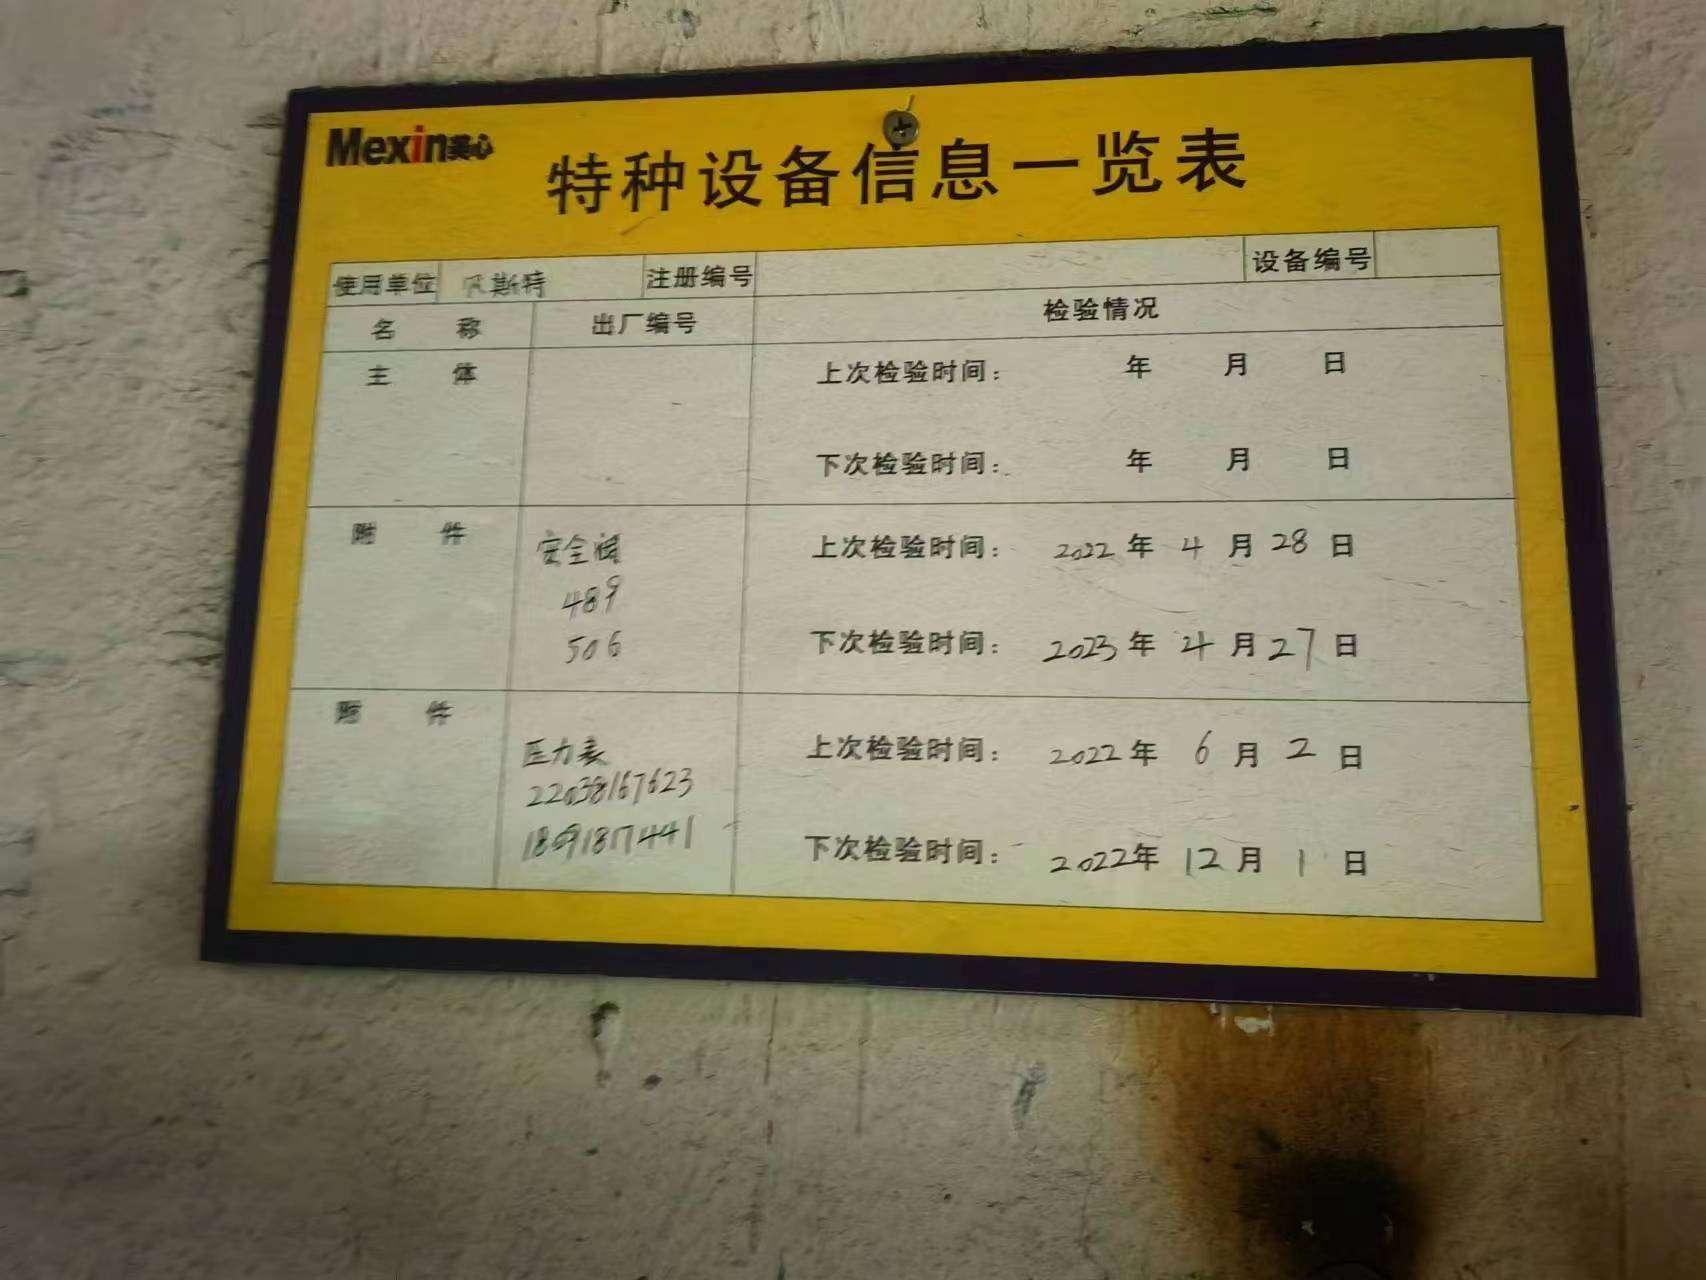 Mexin美心
特种设备信息一览表
使用单位 贝斯特 注册编号 设备编号
名 称 出厂编号 检验情况
主 体 上次检验时间： 年 月 日
下次检验时间： 年 月 日
附 件 安全阀 上次检验时间： 2022 年 4 月 28 日
489
506 下次检验时间： 2023 年 4 月 27 日
附 件 压力表 上次检验时间： 2022 年 6 月 2 日
22038167623
18091871441 下次检验时间： 2022 年 12 月 1 日